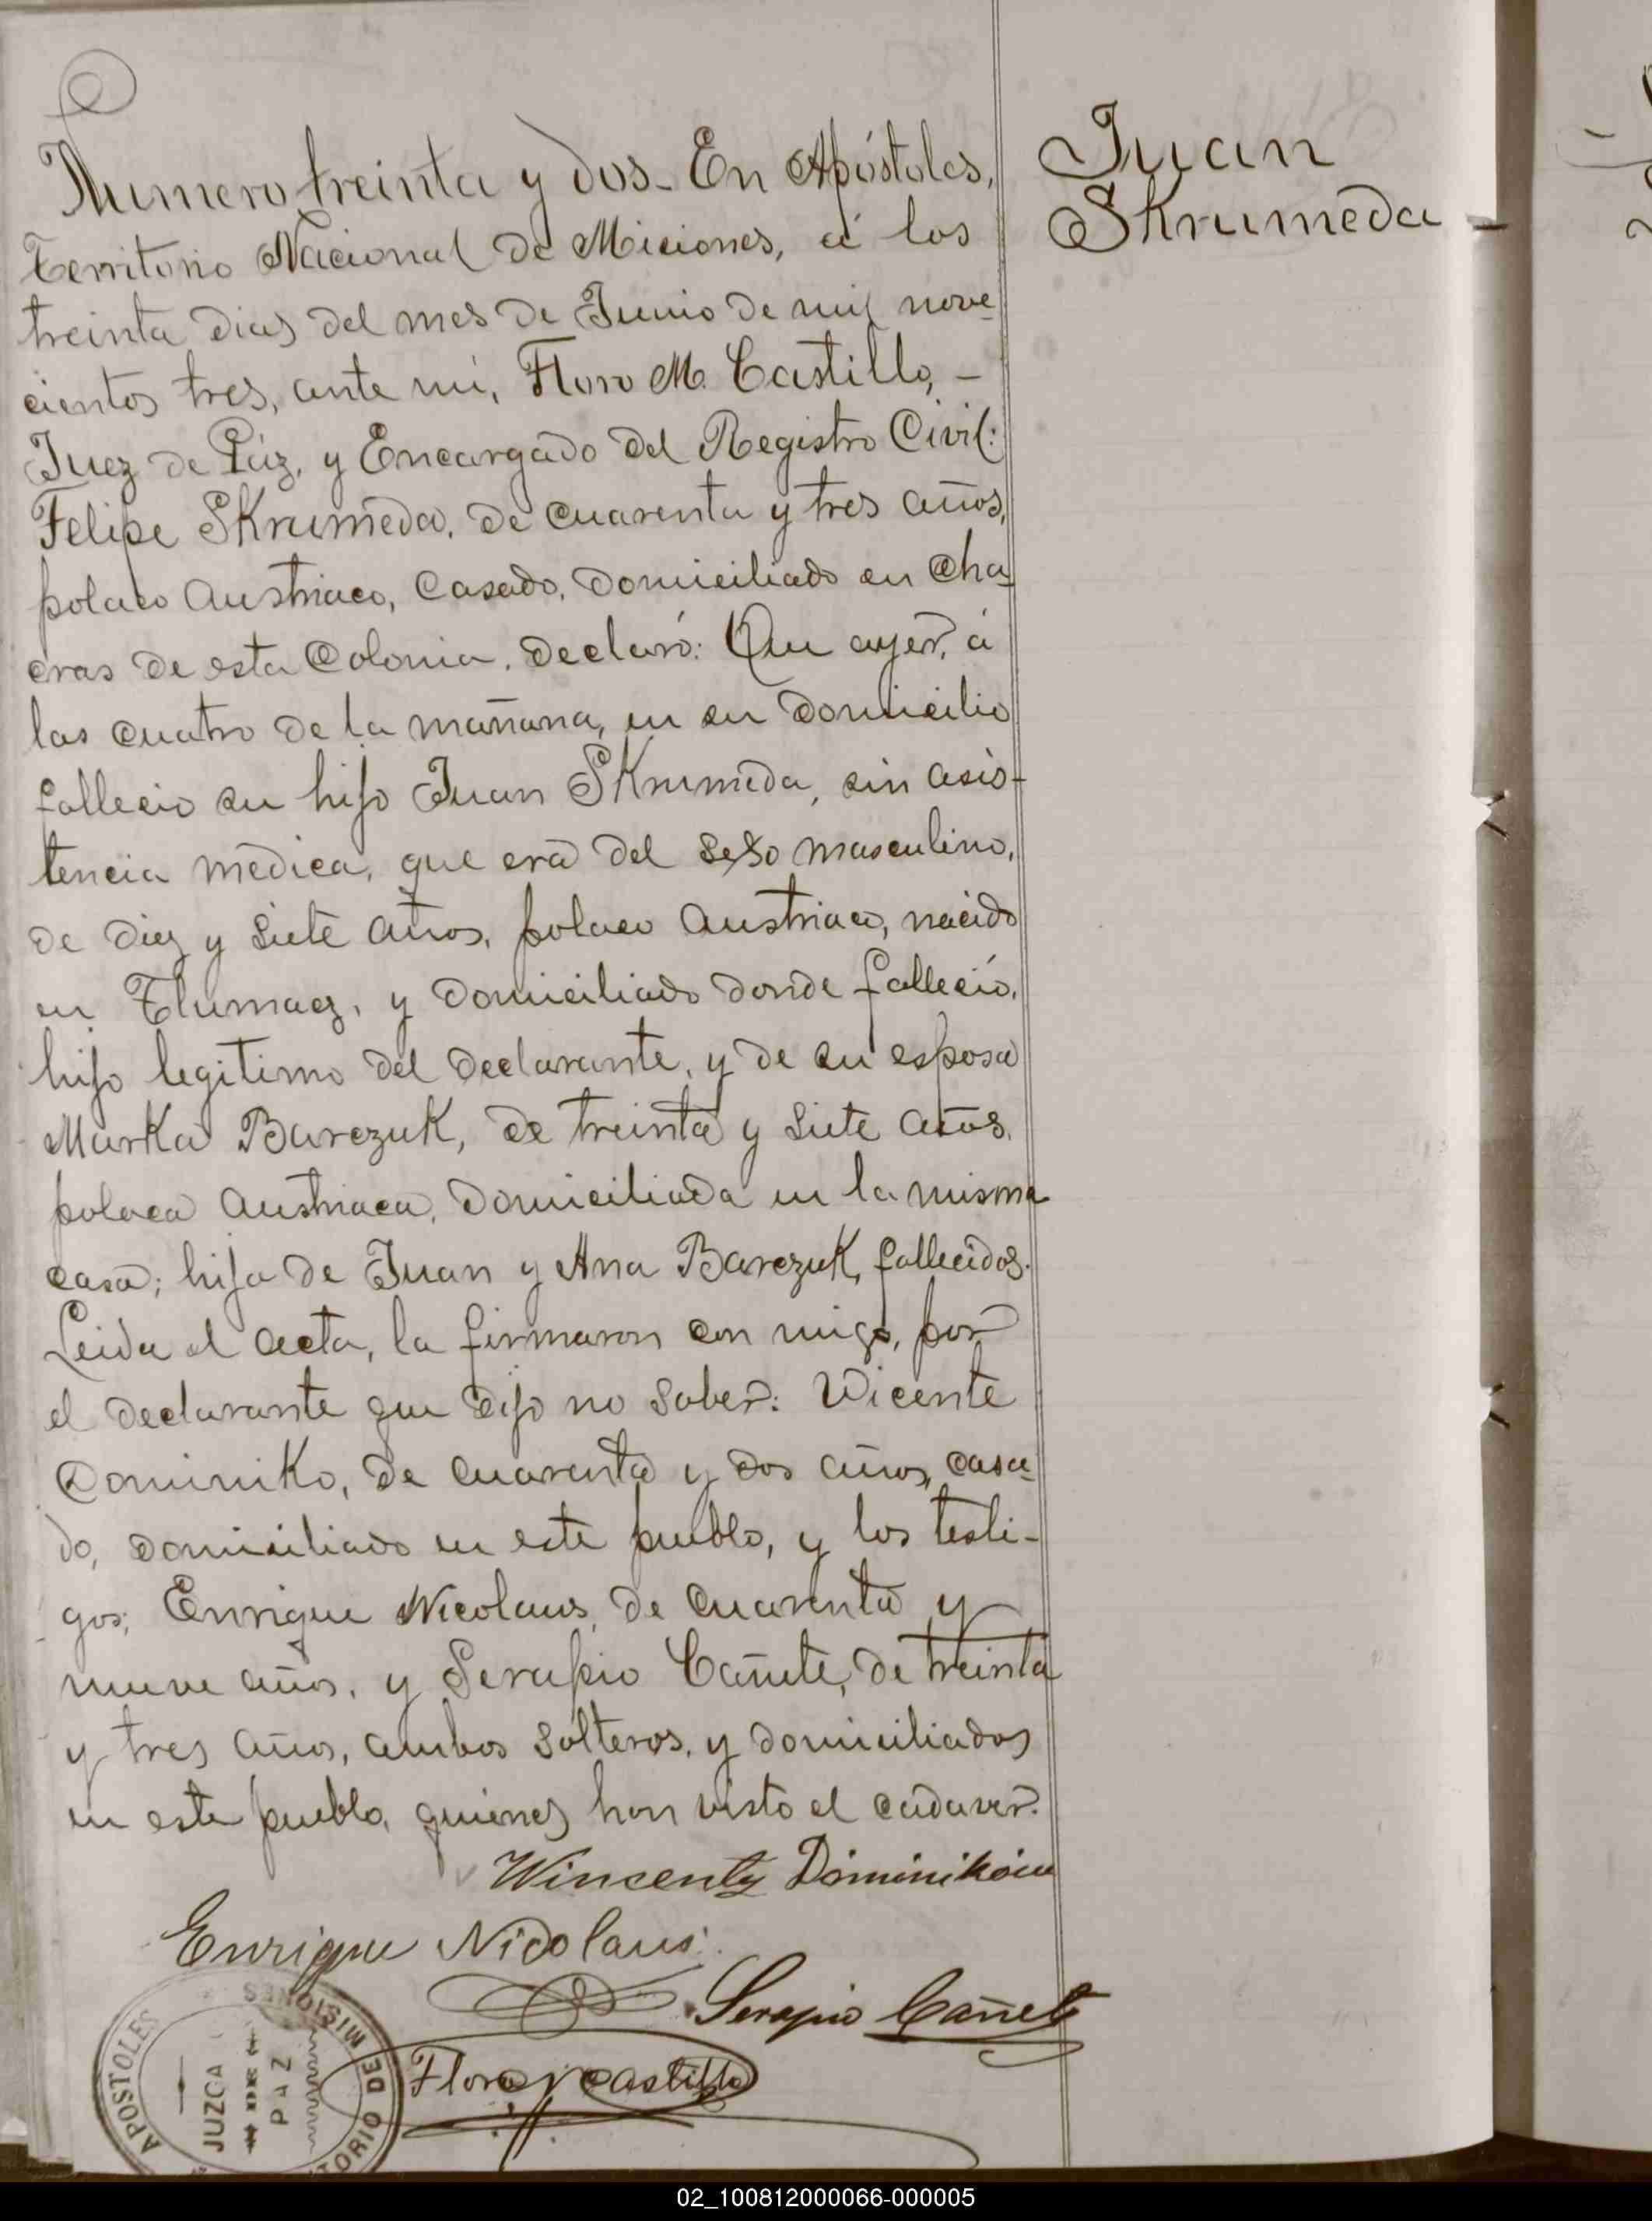 Numero treinta y dos - En Apóstoles,
Territorio Nacional de Miciones, á los
treinta dias del mes de Junio de mil nove-
cientos tres, ante mí, Floro M. Castillo, -
Juez de Páz, y Encargado del Registro Civil:
Felipe Skrumeda, de cuarenta y tres años,
polaco austriaco, casado, domiciliado en cha-
cras de esta Colonia, declaró: Que ayer, á
las cuatro de la mañana, en su domicilio
fallecio su hijo Juan Skrumeda, sin asis-
tencia medica, que era del sexo masculino,
de diez y siete años, polaco austriaco, nacido
en Tlumacz, y domiciliado donde falleció,
hijo legitimo del declarante, y de su esposa
Marka Barczuk, de treinta y siete años,
polaca austriaca, domiciliada en la misma
casa; hija de Juan y Ana Barczuk, fallecidos.
Leida el acta, la firmaron con migo, por
el declarante que dijo no saber: Vicente
Dominiko, de cuarenta y dos años, casa-
do, domiciliado en este pueblo, y los testi-
gos; Enrique Nicolaus, de cuarenta y
nueve años, y Serapio Cañete, de treinta
y tres años, ambos solteros, y domiciliados
en este pueblo, quienes han visto el cadaver.
Juan
Skrumeda
Wincenty Dominików
Enrique Nicolaus
Serapio Cañete
Floro M Castillo
APOSTOLES
MISIONES
DE
JUZGA
DE
PAZ
02_100812000066-000005